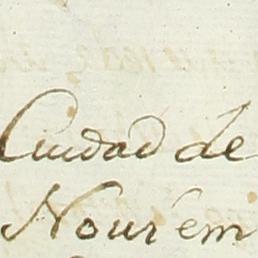 Ciudad de
Nour'em